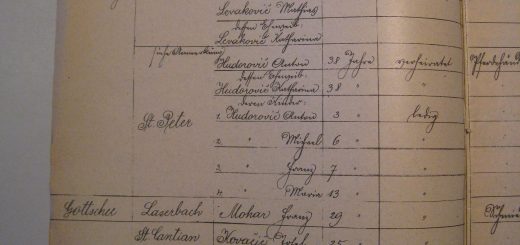 Levaković Mathias
dessen Eheweib:
Levaković Katharina
Hudorović Anton 38 Jahre verheiratet
dessen Eheweib:
Hudorović Katharina 38 " "
deren Kinder:
St. Peter 1. Hudorović Anton 3 " ledig
2. " Michael 6 " "
3. " Franz 7 " "
4. " Maria 13 " "
Gottschee Laserbach Mohar Franz 29 " "
St. Cantian Kovačić